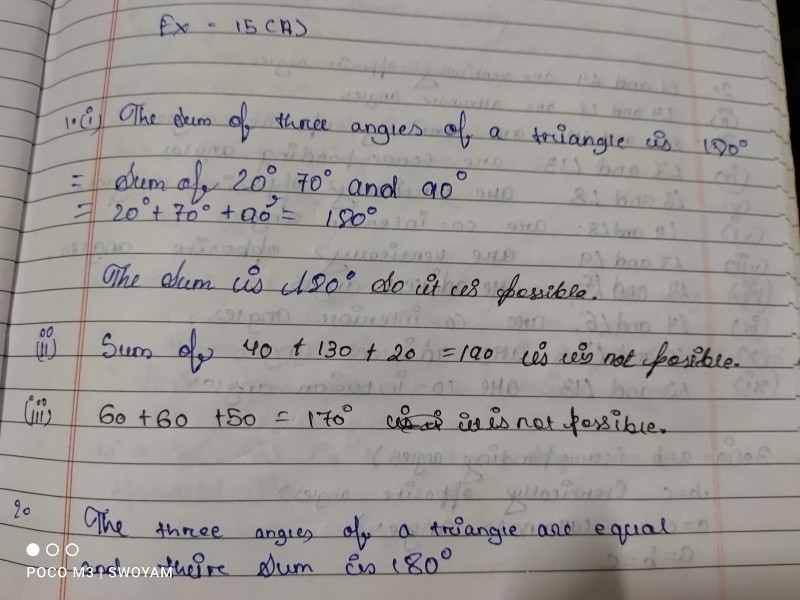 Ex - 15(A)
1.(i) The sum of three angles of a triangle is 180°
= Sum of 20° 70° and 90°
= 20° + 70° + 90° = 180°
The sum is 180° so it is possible.
(ii) Sum of 40 + 130 + 20 = 190 is is not posible.
(iii) 60 + 60 + 50 = 170° it is not possible.
2. The three angles of a triangle are equal
and their sum is 180°
POCO M3 | SWOYAM